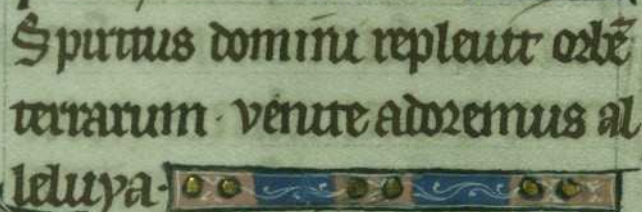 Spiritus domini repleuit orbē
terrarum · venite adoremus al
leluya·